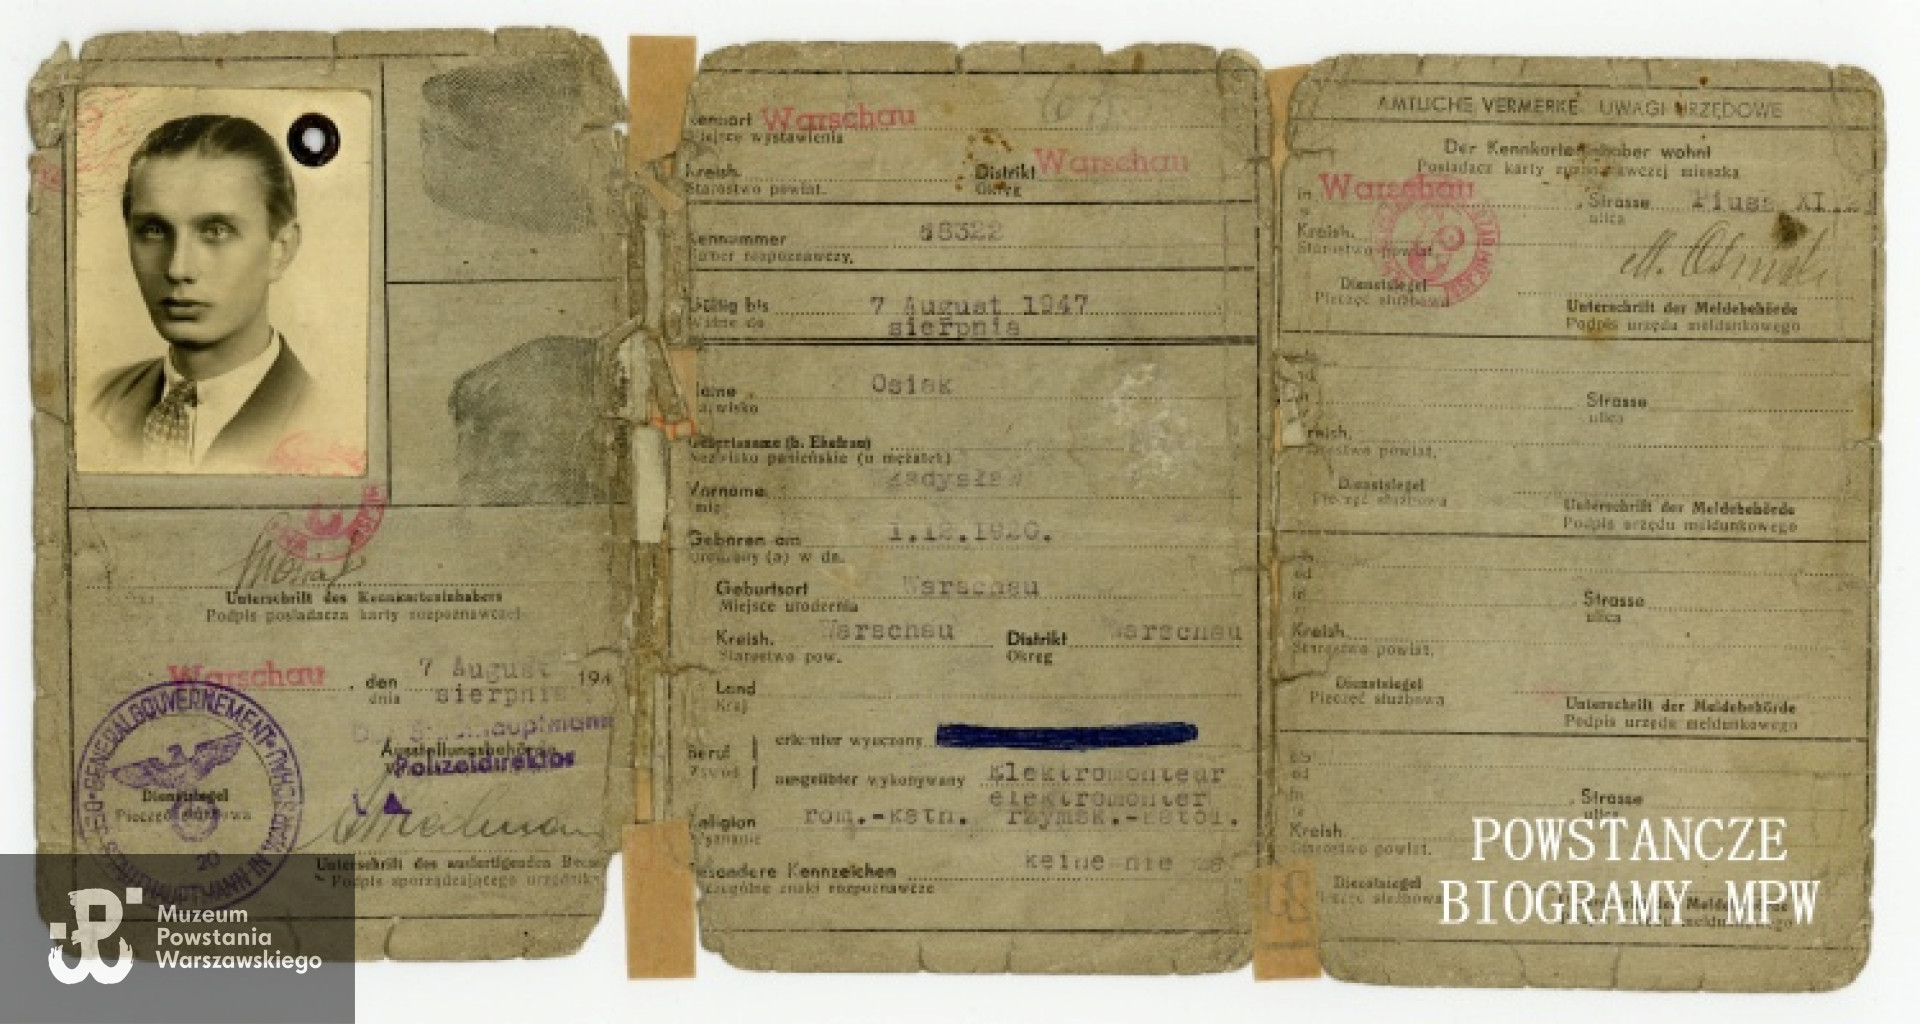 Unterschrift des Kennkarteninhabers
Podpis posiadacza karty rozpoznawczej
Warschau, den 7 August 194
dnia sierpnia
Ausstellungsbehörde
Polizeidirektor
GENERALGOUVERNEMENT
Dienstsiegel
Pieczęć służbowa
20
Unterschrift des ausfertigenden
Podpis sporządzającego urzędnika
Muzeum
Powstania
Warszawskiego
Kennort Warschau
Miejsce wystawienia
Kreish. Distrikt Warschau
Starostwo powiat. Okręg
Kennummer 68322
Numer rozpoznawczy.
Gültig bis 7 August 1947
Ważne do sierpnia
Name Osiak
Nazwisko
Geburtsname (b. Ehefrau)
Nazwisko panieńskie (u mężatek)
Vorname Władysław
Imię
Geboren am 1.12.1920.
Urodzony (a) w dn.
Geburtsort Warschau
Miejsce urodzenia
Kreish. Warschau Distrikt Warschau
Starostwo pow. Okręg
Land
Kraj
Beruf erlernter wyuczony
Zawód ausgeübter wykonywany Elektromonteur
elektromonter
Religion rom.-kath. rzymsk.-katol.
Wyznanie
Besondere Kennzeichen keine-nie ma
Szczególne znaki rozpoznawcze
AMTLICHE VERMERKE UWAGI URZĘDOWE
Der Kennkarteninhaber wohnt
Posiadacz karty rozpoznawczej mieszka
in Warschau, Strasse Piusa XI.
w ulica
Kreish.
Starostwo powiat.
Dienstsiegel
Pieczęć służbowa
Unterschrift der Meldebehörde
Podpis urzędu meldunkowego
Strasse
ulica
Kreish.
Starostwo powiat.
Dienstsiegel
Pieczęć służbowa
Unterschrift der Meldebehörde
Podpis urzędu meldunkowego
Strasse
ulica
Kreish.
Starostwo powiat.
Dienstsiegel
Pieczęć służbowa
Unterschrift der Meldebehörde
Podpis urzędu meldunkowego
in , Strasse
w ulica
Kreish.
Starostwo powiat.
Dienstsiegel
Pieczęć służbowa
POWSTANCZE
BIOGRAMY MPW